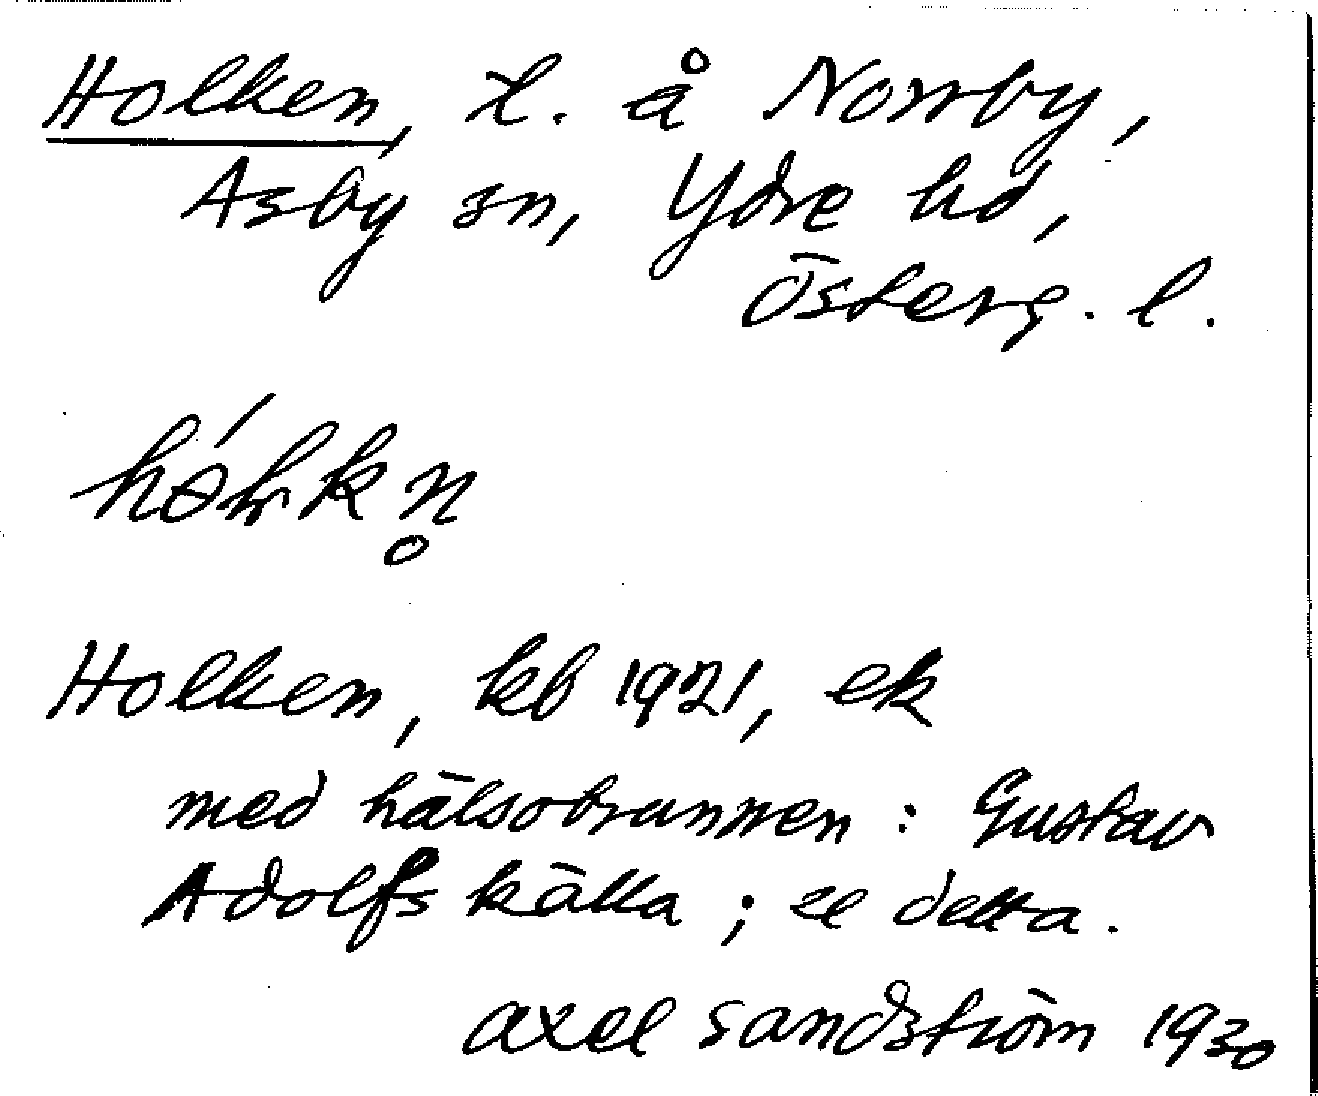 Holken, t. å Norrby,
Asby sn, Ydre hd,
Österg. l.
Holken, kb 1921, ek
med hälsobrunnen: Gustav
Adolfs källa; se detta.
axel sandström 1930